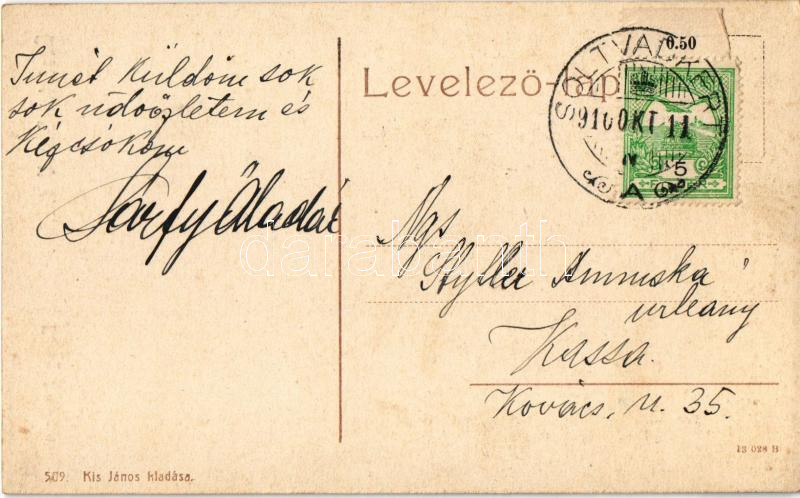 Levelező-lap
0.50
SOLTVADKERT
910 OKT 11
A
5
Ismét küldöm sok
sok üdvözletem és
kézcsókom
Sárfy Aladár
Ngs
Styller Annuska
urleany
Kassa.
Kovács, u. 35.
509. Kis János kiadása.
13 028 B
darabanth